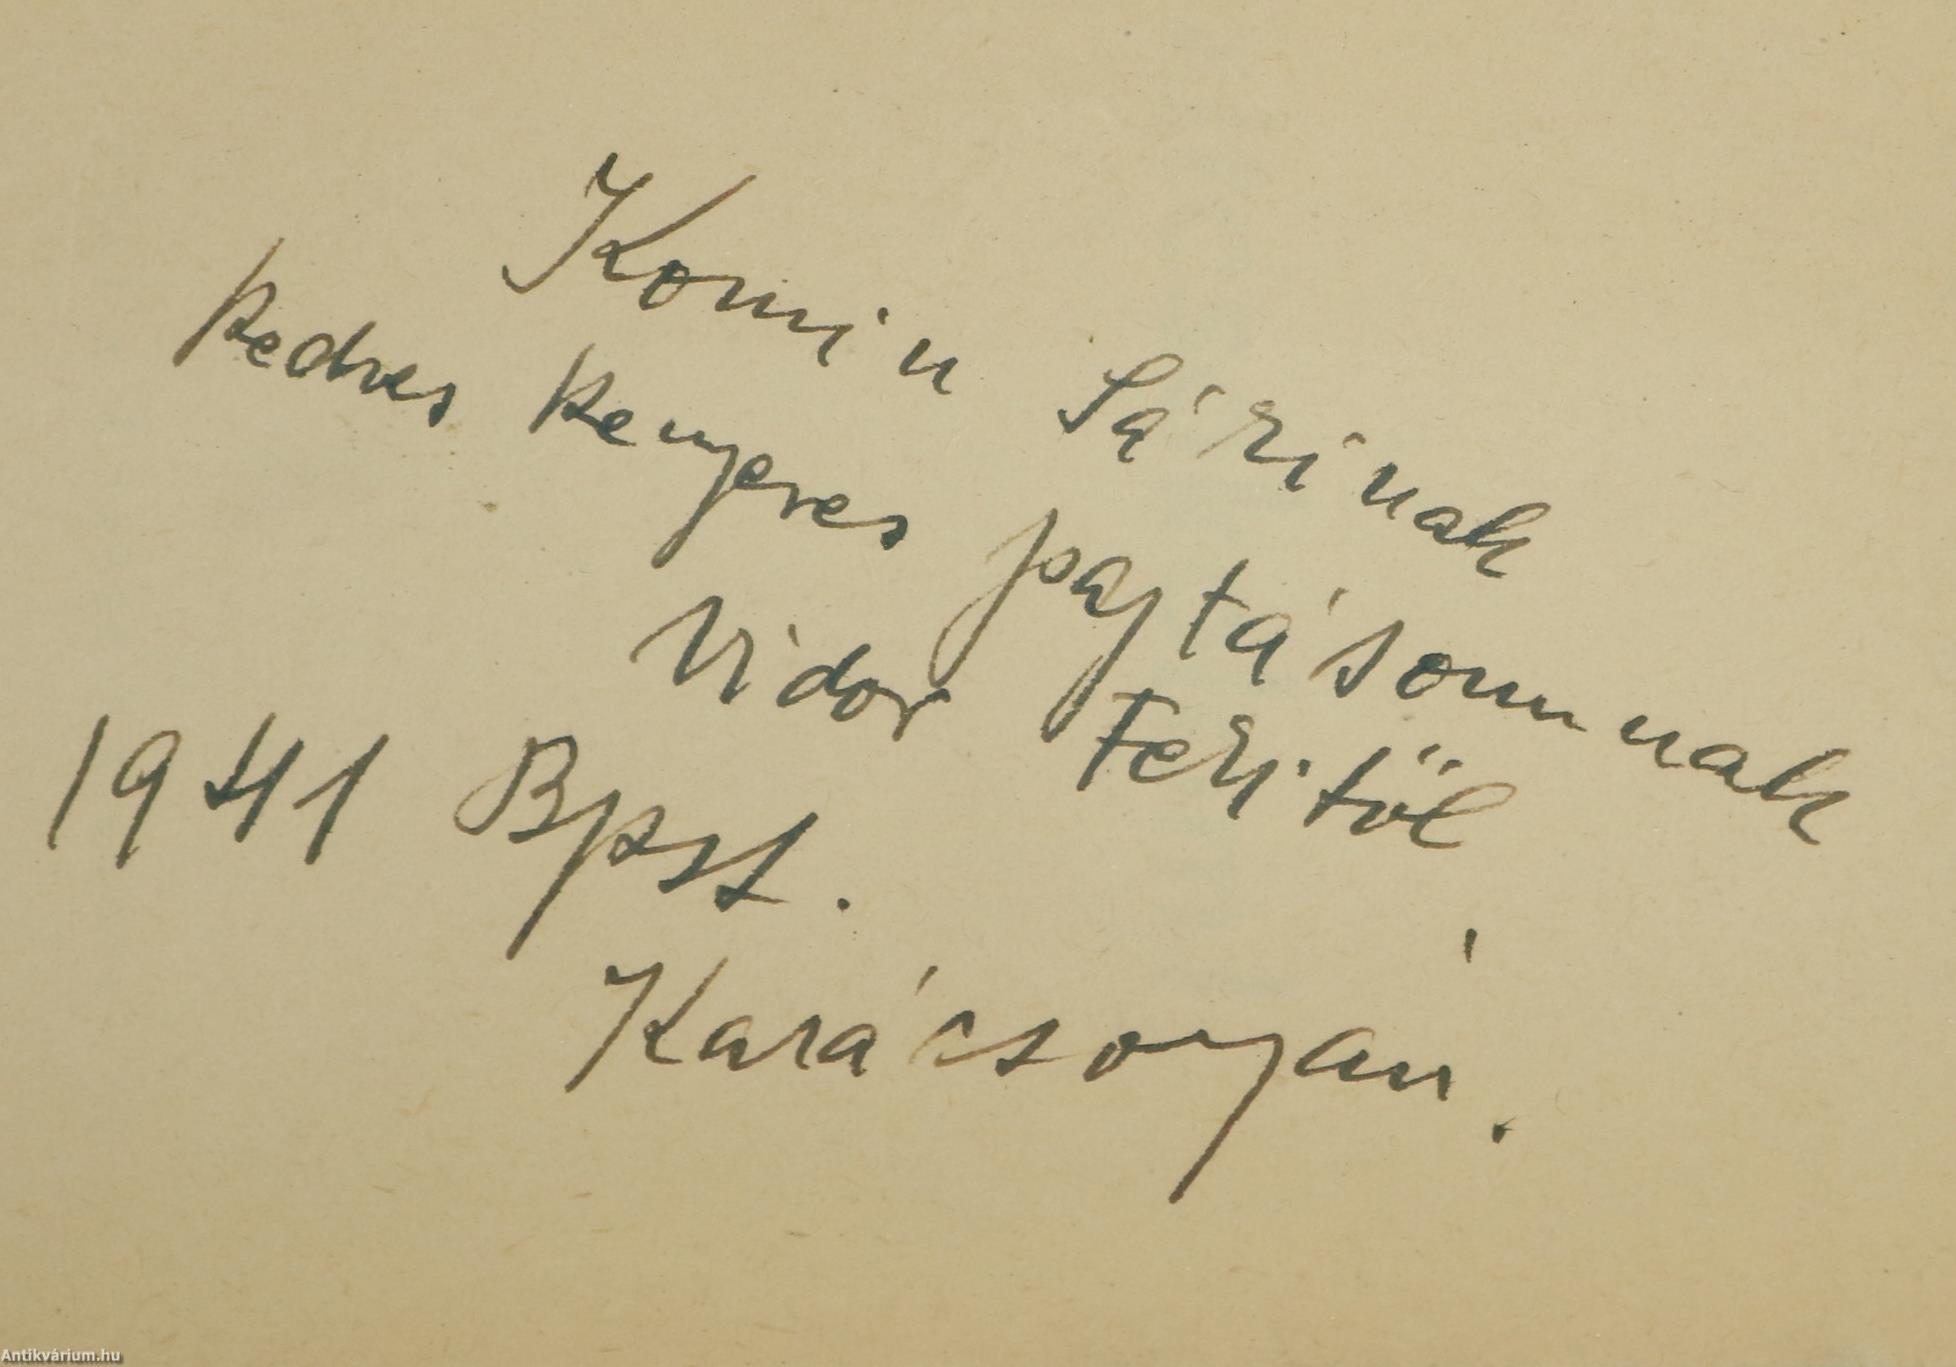 Komin Sárinak
kedves kenyeres pajtásomnak
Vidor Feritől
1941 Bpst.
Karácsonyán.
Antikvárium.hu